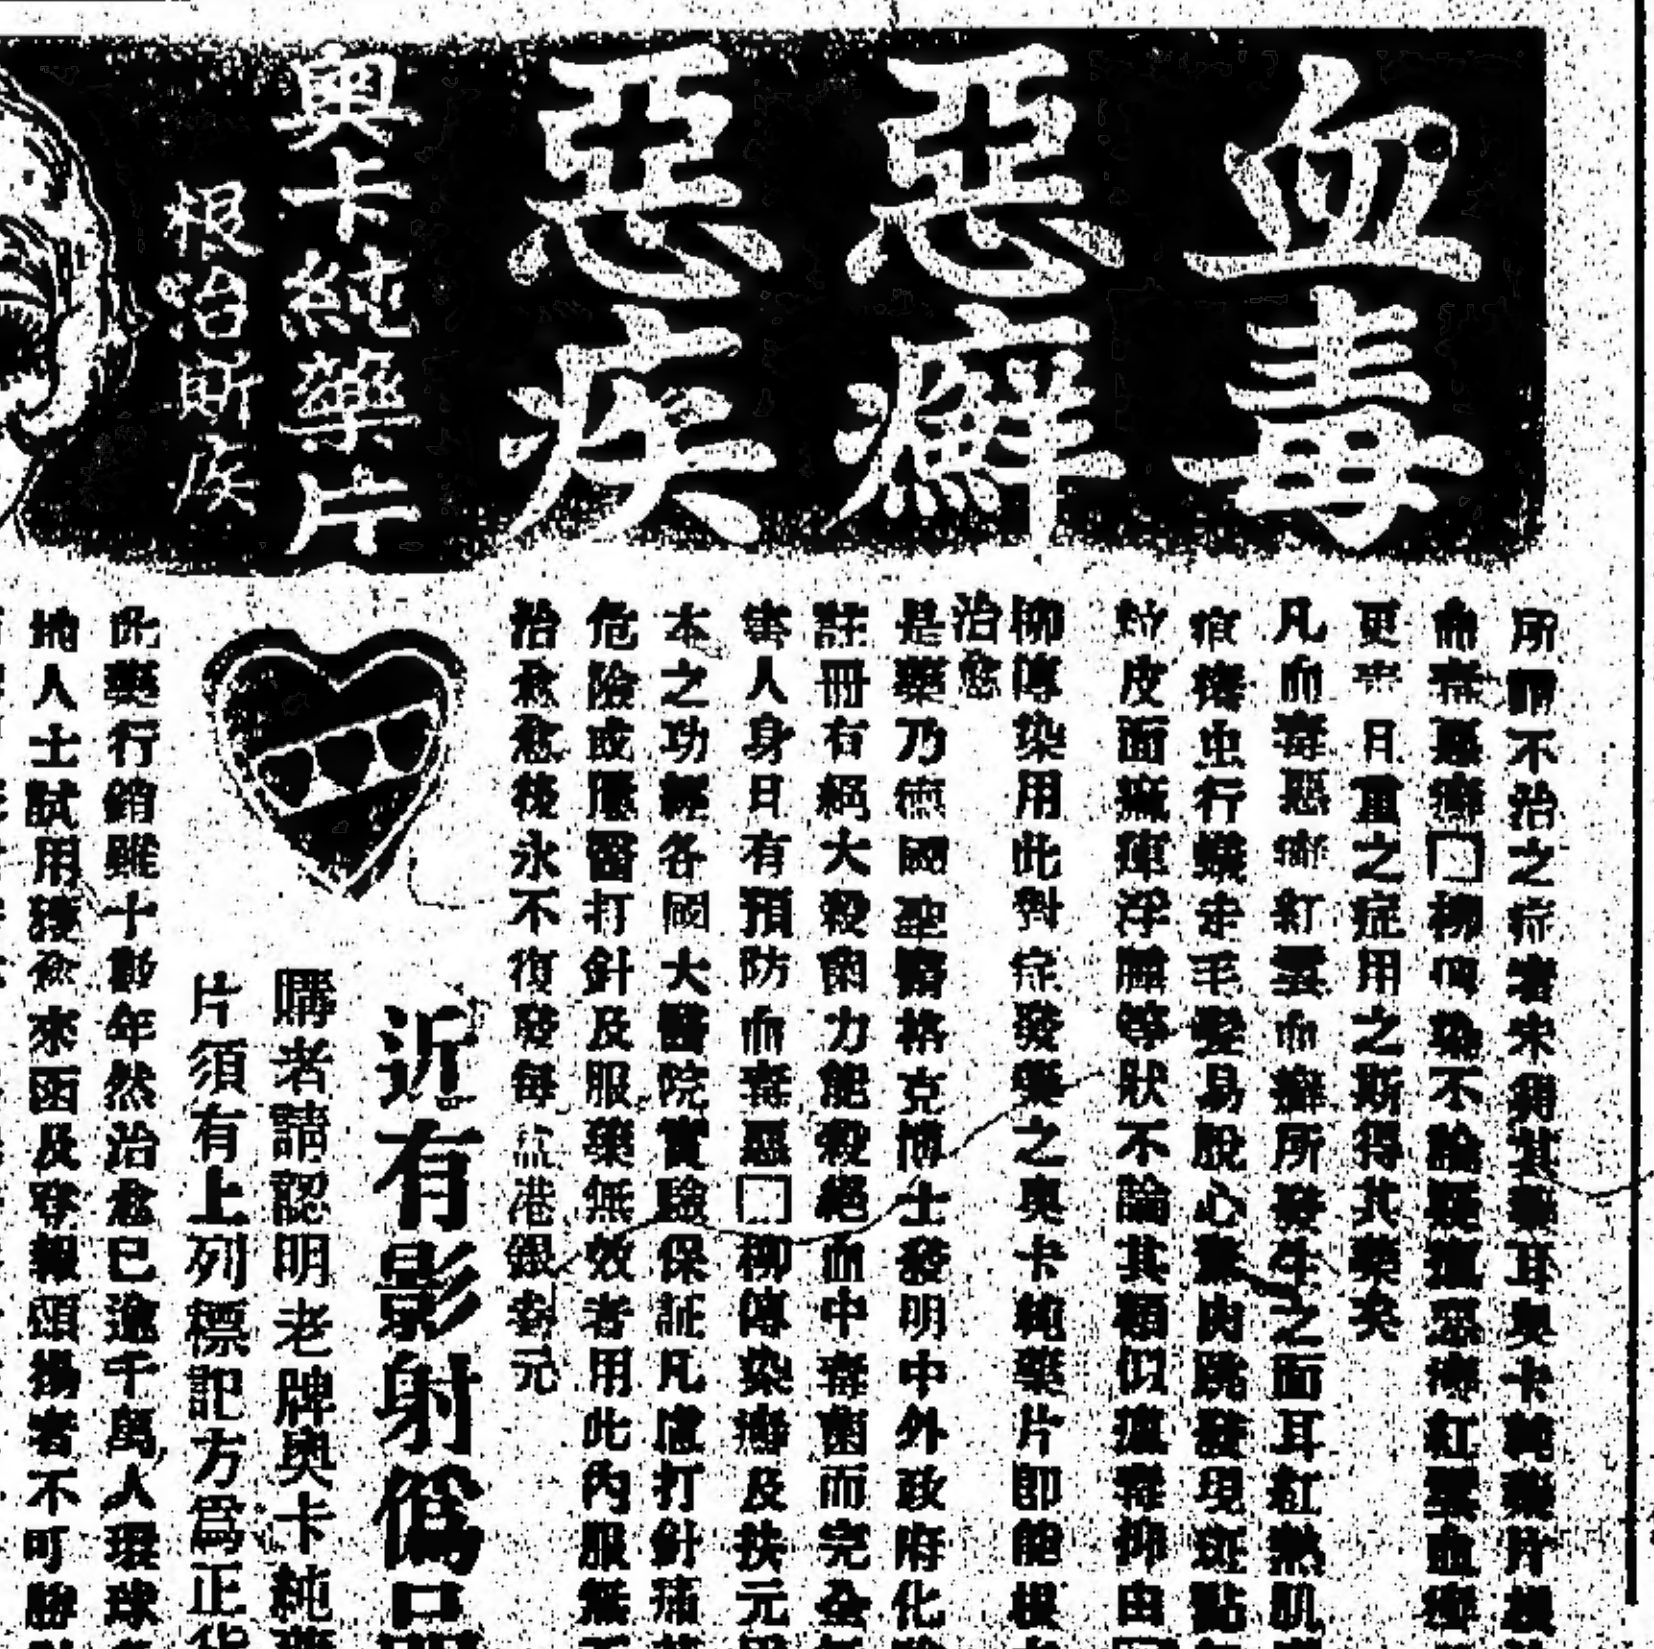 血毒
惡癬
惡疾
奧卡純藥片
根治斯疾
所謂不治之症者未用其藥耳奧卡純藥片根
血毒惡癬□柳傳染不論
更非月重之症用之斯得其藥矣
凡血毒惡癬紅雲血癬所發生之面耳紅熱肌
痕癢虫行蟻走毛髮易脫心驚肉跳發現斑點
皮面麻痺浮腫等狀不論其類似瘋毒抑由
柳傳染用此對症發藥之奧卡純藥片即能根
治愈
是藥乃德國聖醫格克博士發明中外政府化驗
註冊有絕大殺菌力能殺絕血中毒菌而完全
害人身且有預防血毒惡□柳傳染癬及扶元
本之功經各國大醫院實驗保証凡慮打針痛
危險或屢醫打針及服藥無效者用此內服無
治愈愈後永不復發每盒港銀叁元
近有影射僞品
購者請認明老牌奧卡純藥
片須有上列標記方爲正貨
此藥行銷雖十數年然治愈已逾千萬人環球
地人士試用獲愈來函及登報頌揚者不可勝